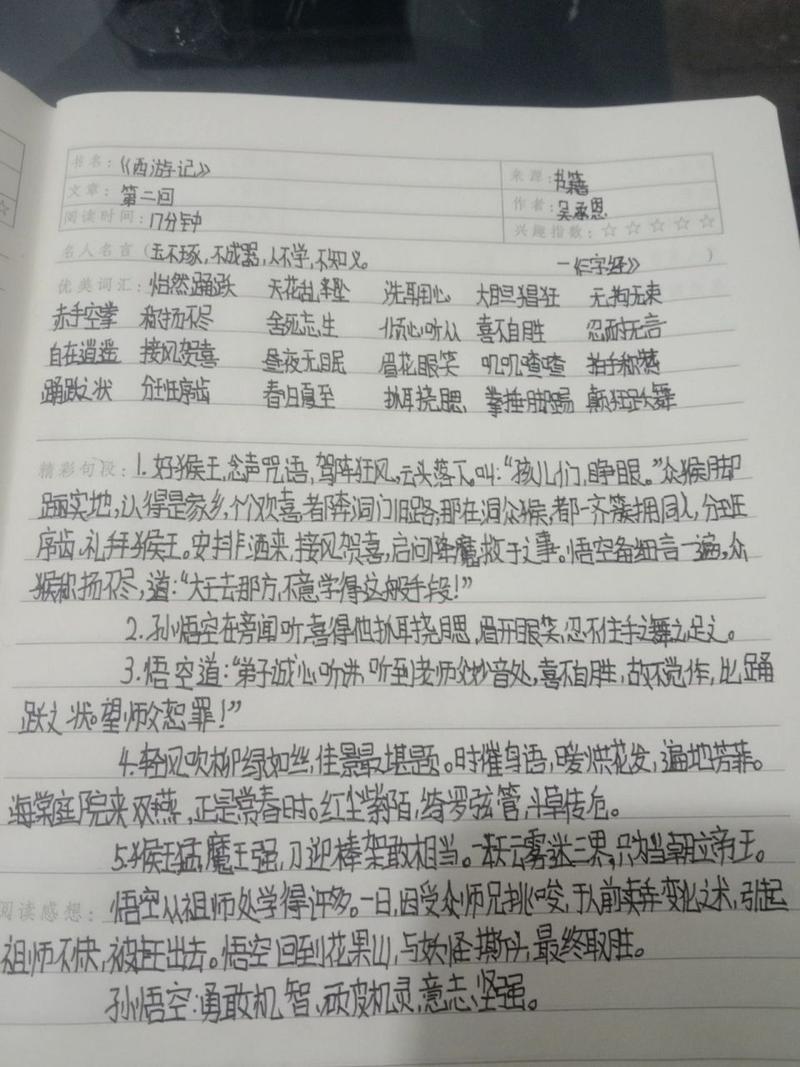 书名：《西游记》 来源：书籍
文章：第二回 作者：吴承恩
阅读时间：17分钟 兴趣指数：☆☆☆☆☆
名人名言（玉不琢，不成器，人不学，不知义。 —《三字经》）
优美词汇：怡然踊跃 天花乱坠 洗耳用心 大胆猖狂 无拘无束
赤手空拳 称扬不尽 舍死忘生 倾心听从 喜不自胜 忍耐无言
自在逍遥 接风贺喜 昼夜无眠 眉花眼笑 叽叽喳喳 拍手称
踊跃之状 分班序齿 春归夏至 抓耳挠腮 拳捶脚踢 颠狂跃舞
精彩句段：1.好猴王，念声咒语，驾阵狂风。云头落下。叫：“孩儿们，睁眼。”众猴脚
踏实地，认得是家乡，个个欢喜。都奔洞门旧路，那在洞众猴，都一齐簇拥同入，分班
序齿，礼拜猴王。安排酒来，接风贺喜，启问降魔救子之事。悟空备细言一遍，众
猴称扬不尽，道：“大王去那方，不意学得这般手段！”
2.孙悟空在旁闻听，喜得他抓耳挠腮，眉开眼笑，忍不住手之舞之，足之。
3.悟空道：“弟子诚心听讲，听到老师父妙音处，喜不自胜，故不觉作，比踊
跃之状。望师父恕罪！”
4.轻风吹柳绿如丝，佳景最堪题。时催鸟语，暖烘花发，遍地芳菲。
海棠庭院来双燕，正是赏春时。红尘紫陌，绮罗弦管，斗草传卮。
5.猴王猛，魔王强，刀迎棒架敢相当。一跃云雾迷三界，只为当朝立帝王。
阅读感想：悟空从祖师处学得许多。一日，因受众师兄挑唆，于人前卖弄变化之术，引起
祖师不快，被赶出去。悟空回到花果山，与妖怪撕斗，最终取胜。
孙悟空：勇敢机智、顽皮机灵，意志坚强。